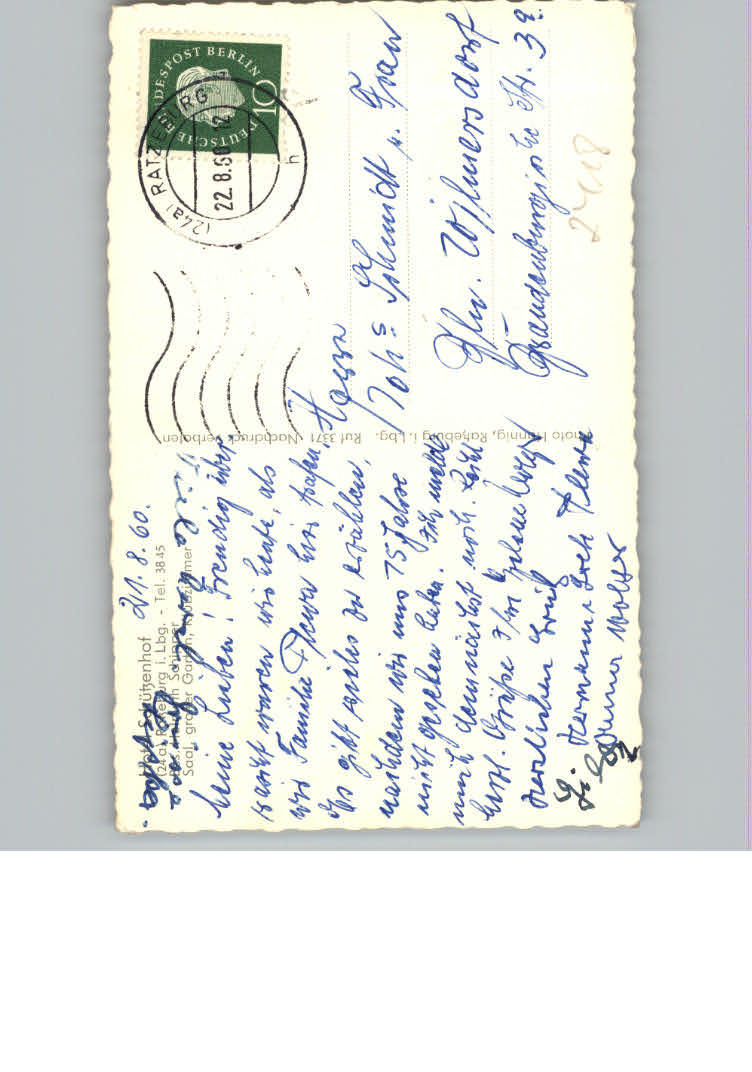 Hotel Schützenhof
(24a) Ratzeburg i. Lbg. - Tel. 3845
Bes. Heinrich Schipper
Saal, großer Garten, Klubzimmer
21.8.60.
Meine Lieben! Freudig über-
rascht waren wir heute, als
wir Familie hier trafen.
Es gibt vieles zu erzählen,
nachdem wir uns 15 Jahre
nicht gesehen haben. Ich melde
mich demnächst noch. Recht
herzl. Grüße
Herzlichen Gruß
Hermann
Photo Hennig, Ratzeburg i. Lbg. Ruf 3371 Nachdruck verboten
DEUTSCHE BUNDESPOST BERLIN
10
(24a) RATZEBURG
22.8.60-12
h
Herrn
Joh's Schmidt u. Frau
Bln. Wilmersdorf
Brandenburgische Str. 38
2418